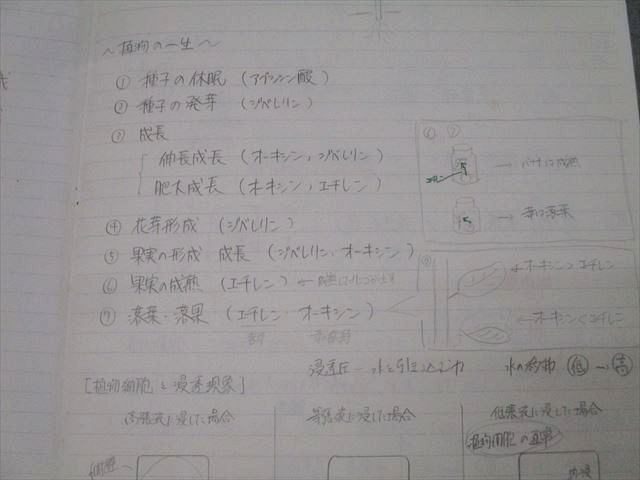 ～植物の一生～
① 種子の休眠 (アブシシン酸)
② 種子の発芽 (ジベレリン)
③ 成長
伸長成長 (オーキシン, ジベレリン)
肥大成長 (オーキシン, エチレン)
④ 花芽形成 (ジベレリン)
⑤ 果実の形成 成長 (ジベレリン・オーキシン)
⑥ 果実の成熟 (エチレン) ←
⑦ 落葉・落果 (エチレン・オーキシン)
⑥ ⑦
→ バナナは成熟
→ 葉は落葉
←オーキシン＞エチレン
←オーキシン＜エチレン
浸透圧 - 水を引き込む力 水の移動 低→高
[植物細胞と浸透現象]
高張液に浸した場合
等張液に浸した場合
低張液に浸した場合
植物細胞の
細胞壁